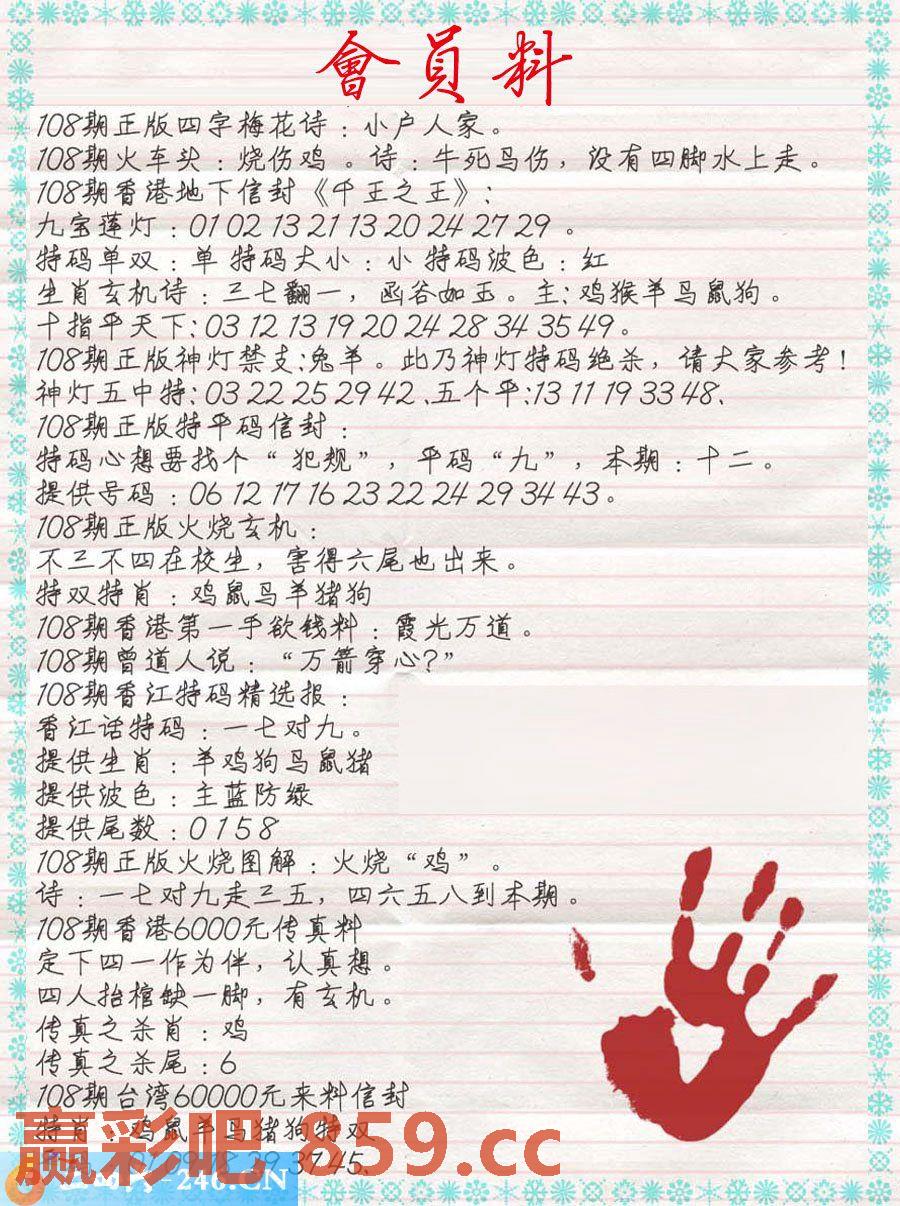 會員料
108期正版四字梅花诗：小户人家。
108期火车头：烧伤鸡 。诗：牛死马伤，没有四脚水上走。
108期香港地下信封《千王之王》：
九宝莲灯：01 02 13 21 13 20 24 27 29 。
特码单双：单 特码大小：小 特码波色：红
生肖玄机诗：三七翻一，函谷如玉。主:鸡猴羊马鼠狗。
十指平天下:03 12 13 19 20 24 28 34 35 49。
108期正版神灯禁支:兔羊。此乃神灯特码绝杀，请大家参考！
神灯五中特:03 22 25 29 42 、五个平:13 11 19 33 48、
108期正版特平码信封：
特码心想要找个“ 犯规”，平码“九”，本期：十二。
提供号码：06 12 17 16 23 22 24 29 34 43。
108期正版火烧玄机：
不三不四在校生，害得六尾也出来。
特双特肖：鸡鼠马羊猪狗
108期香港第一手欲钱料：霞光万道。
108期曾道人说：“万箭穿心?”
108期香江特码精选报：
香江话特码：一七对九。
提供生肖：羊鸡狗马鼠猪
提供波色：主蓝防绿
提供尾数：0 1 5 8
108期正版火烧图解：火烧“鸡”。
诗：一七对九走三五，四六五八到本期。
108期香港6000元传真料
定下四一作为伴，认真想。
四人抬棺缺一脚，有玄机。
传真之杀肖：鸡
传真之杀尾：6
108期台湾60000元来料信封
特肖：鸡鼠羊马猪狗特双
赢彩吧.859.cc
37 45、
-246.CN